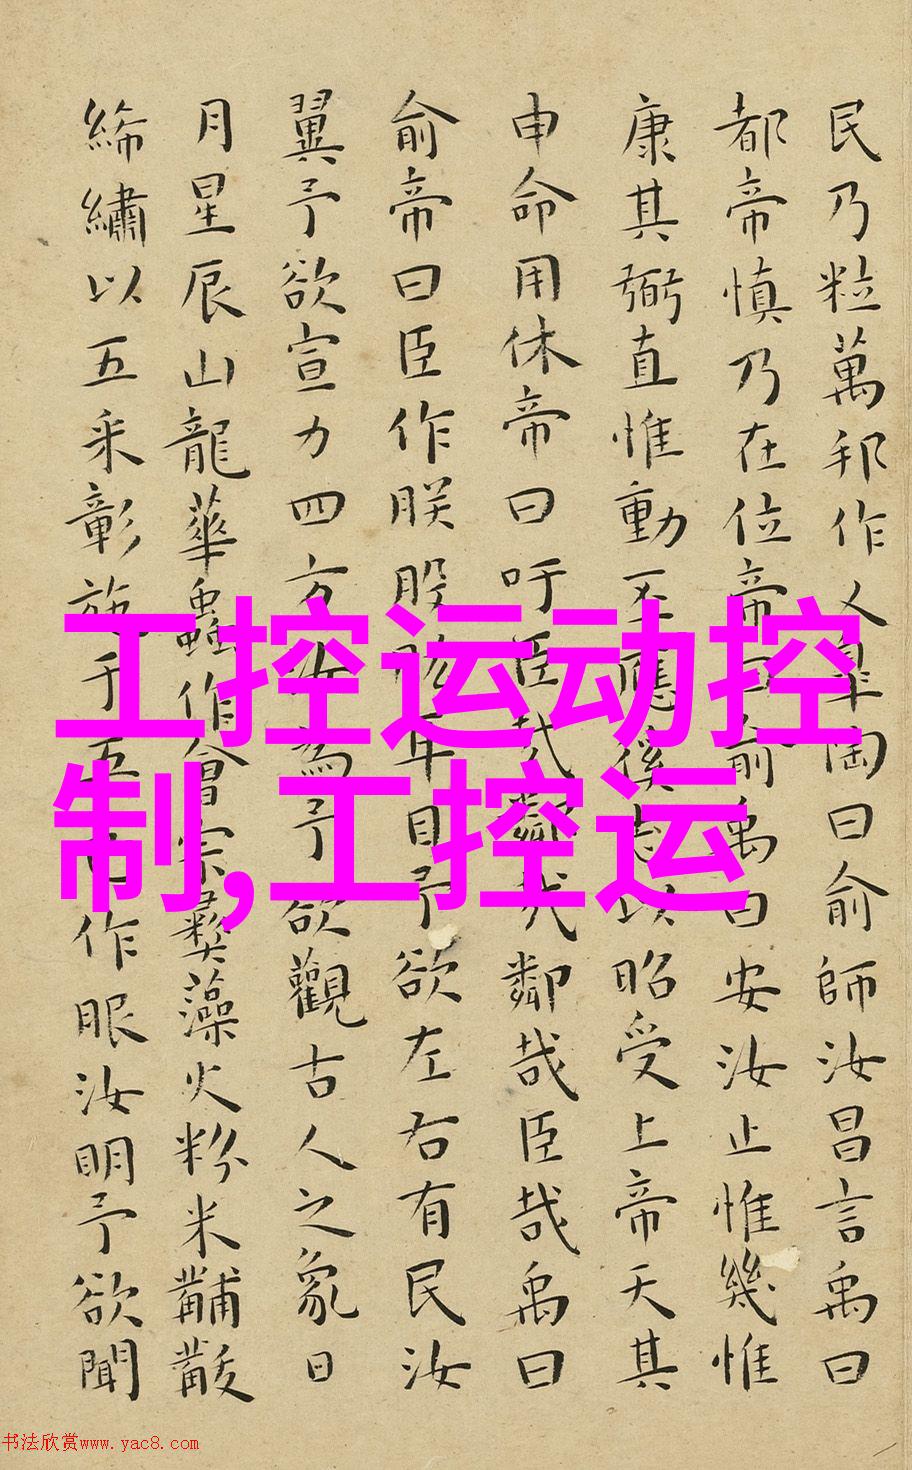 民乃粒萬邦作乂皋陶曰俞師汝昌言禹曰
都帝慎乃在位帝曰俞禹曰安汝止惟幾惟
康其弼直惟動丕應徯志以昭受上帝天其
申命用休帝曰吁臣哉鄰哉鄰哉臣哉禹曰
俞帝曰臣作朕股肱耳目予欲左右有民汝
翼予欲宣力四方汝為予欲觀古人之象日
月星辰山龍華蟲作會宗彝藻火粉米黼黻
絺繡以五采彰施于五色作服汝明予欲聞
工控运动控
制,工控运
书法欣赏www.yac8.com